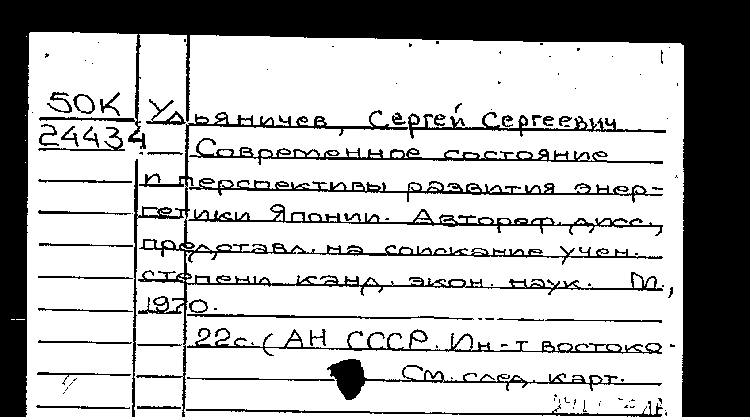 50К Ульяничев, Сергей Сергеевич
24434 Современное состояние
и перспективы развития энер-
гетики Японии. Автореф. дисс.,
представл. на соискание учен.
степени канд. экон. наук. М.,
1970.
22с. (АН СССР. Ин-т востоко-
См. след. карт.